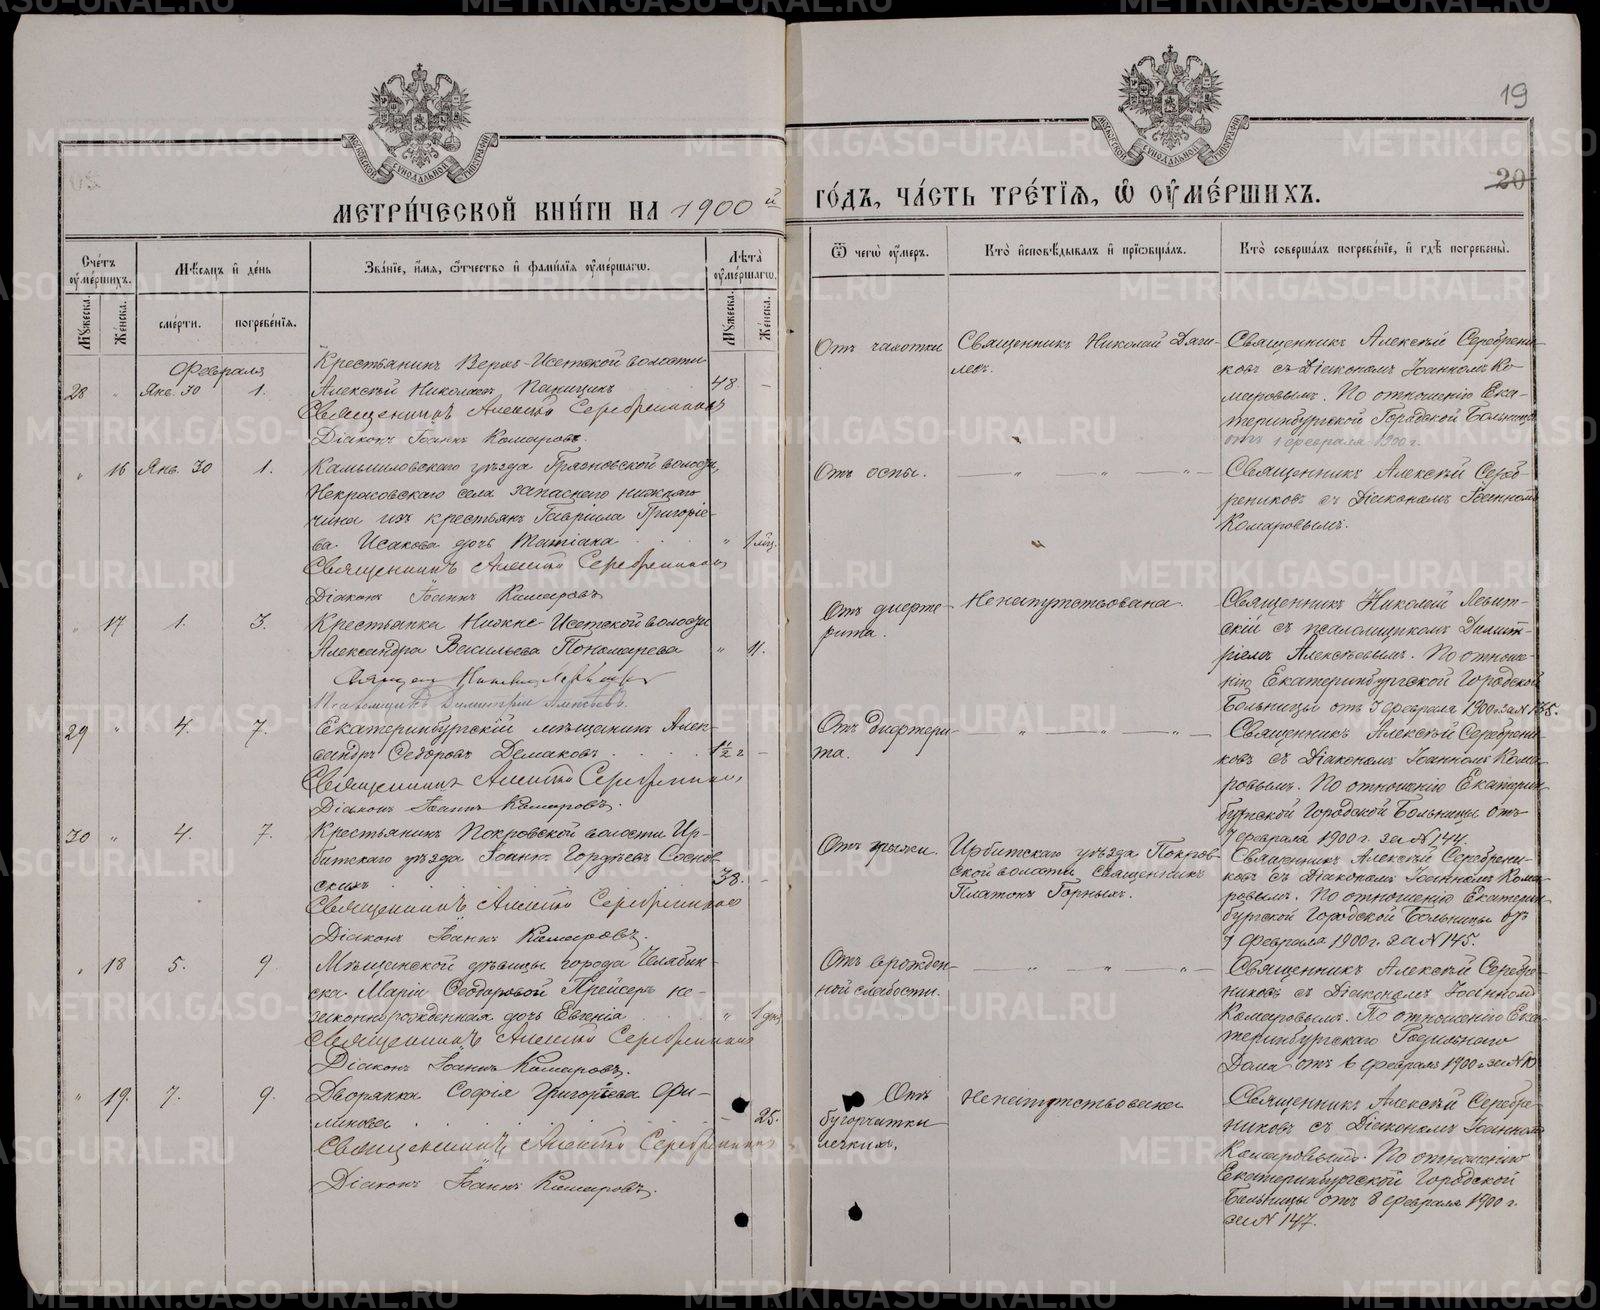 19
20
МЕТРИ́ЧЕСКОЙ КНИ́ГИ НА 1900й
ГО́ДЪ, ЧА́СТЬ ТРЕ́ТІѦ, Ѡ҆ ОУ҆МЕ́РШИХЪ.
Сче́тъ оу҆ме́ршихъ.
Мꙋ́жеска.
Же́нска.
Мѣ́сѧцъ и҆ де́нь
сме́рти.
погребе́нїѧ.
Зва́нїе, и҆́мѧ, ѻ҆́тчество и҆ фами́лїѧ оу҆ме́ршагѡ.
Лѣ́та̀ оу҆ме́ршагѡ.
Мꙋ́жеска.
Же́нска.
Ѿ чегѡ̀ оу҆́меръ.
Кто̀ и҆сповѣ́дывалъ и҆ прїѡбща́лъ.
Кто̀ соверша́лъ погребе́нїе, и҆ гдѣ̀ погребены̀.
Февраля
28 „ Янв. 30 1.
Крестьянинъ Верхъ-Исетской волости
Алексѣй Николаевъ 48. –
Священникъ Алексѣй Серебренниковъ
Діаконъ Іоаннъ Комаровъ.
Отъ чахотки
Священникъ Николай Дяги-
левъ.
Священникъ Алексѣй Серебрени-
ковъ съ Діакономъ Іоанномъ Ко-
маровымъ. По отношенію Ека-
теринбургской Городской Больницы
отъ 1 февраля 1900 г.
„ 16 Янв. 30 1.
Камышловскаго уѣзда Грязновской волости,
Некрасовскаго села запаснаго нижняго
чина изъ крестьянъ Гавріила Григоріе-
ва Исакова дочь Татіана „ 1 мѣс.
Священникъ Алексѣй Серебренниковъ
Діаконъ Іоаннъ Комаровъ
Отъ оспы.
— „ — „ — „ —
Священникъ Алексѣй Сереб-
рениковъ съ Діакономъ Іоанномъ
Комаровымъ.
„ 17 1. 3.
Крестьянка Нижне-Исетской волости
Александра Васильева Пономарева „ 11.
Священ. Николай Левитскій
Псаломщикъ Димитрій Алексѣевъ.
Отъ дифте-
рита.
Ненапутствована.
Священникъ Николай Левит-
скій съ псаломщикомъ Димит-
ріемъ Алексѣевымъ. По отноше-
нію Екатеринбургской Городской
Больницы отъ 3 февраля 1900 г. за №
29 „ 4. 7.
Екатеринбургскій мѣщанинъ Алек-
сандръ Ѳедоровъ Демаковъ 1½ г –
Священникъ Алексѣй Серебренниковъ
Діаконъ Іоаннъ Комаровъ.
Отъ дифтери-
та.
— „ — „ — „ —
Священникъ Алексѣй Серебрени-
ковъ съ Діакономъ Іоанномъ Кома-
ровымъ. По отношенію Екатерин-
бургской Городской Больницы отъ
7 февраля 1900 г. за № 144.
30 „ 4. 7.
Крестьянинъ Покровской волости Ир-
битскаго уѣзда Іоаннъ Гордѣевъ Соснов-
скихъ 38. –
Священникъ Алексѣй Серебренниковъ
Діаконъ Іоаннъ Комаровъ.
Отъ грыжи.
Ирбитскаго уѣзда Покров-
ской волости Священникъ
Платонъ Горныхъ.
Священникъ Алексѣй Серебрени-
ковъ съ Діакономъ Іоанномъ Кома-
ровымъ. По отношенію Екатерин-
бургской Городской Больницы отъ
7 февраля 1900 г. за № 145.
„ 18 5. 9.
Мѣщанской дѣвицы города Челябин-
ска Маріи Ѳеодоровой Прейсеръ не-
законнорожденная дочь Евгенія „ 1 дня
Священникъ Алексѣй Серебренниковъ
Діаконъ Іоаннъ Комаровъ.
Отъ врожден-
ной слабости.
— „ — „ — „ —
Священникъ Алексѣй Серебре-
никовъ съ Діакономъ Іоанномъ
Комаровымъ. По отношенію Ека-
теринбургскаго Родильнаго
Дома отъ 6 февраля 1900 г. за № 10
„ 19. 7. 9.
Дворянка Софія Григорьева Фи-
линова – 25.
Священникъ Алексѣй Серебренниковъ
Діаконъ Іоаннъ Комаровъ.
Отъ
бугорчатки
легкихъ.
Ненапутствована
Священникъ Алексѣй Серебре-
никовъ съ Діакономъ Іоанномъ
Комаровымъ. По отношенію
Екатеринбургской Городской
Больницы отъ 8 февраля 1900 г.
за № 147.
METRIKI.GASO-URAL.RU